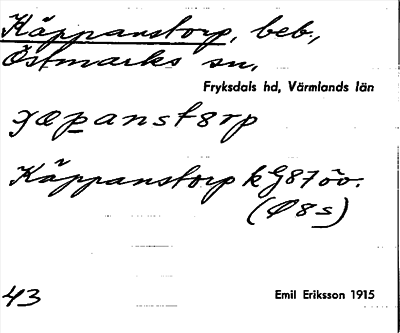 Käppanstorp, beb.,
Östmarks sn,
Fryksdals hd, Värmlands län
xæpanstorp
Käppanstorp k G87 öv.
(Ø8s)
43
Emil Eriksson 1915